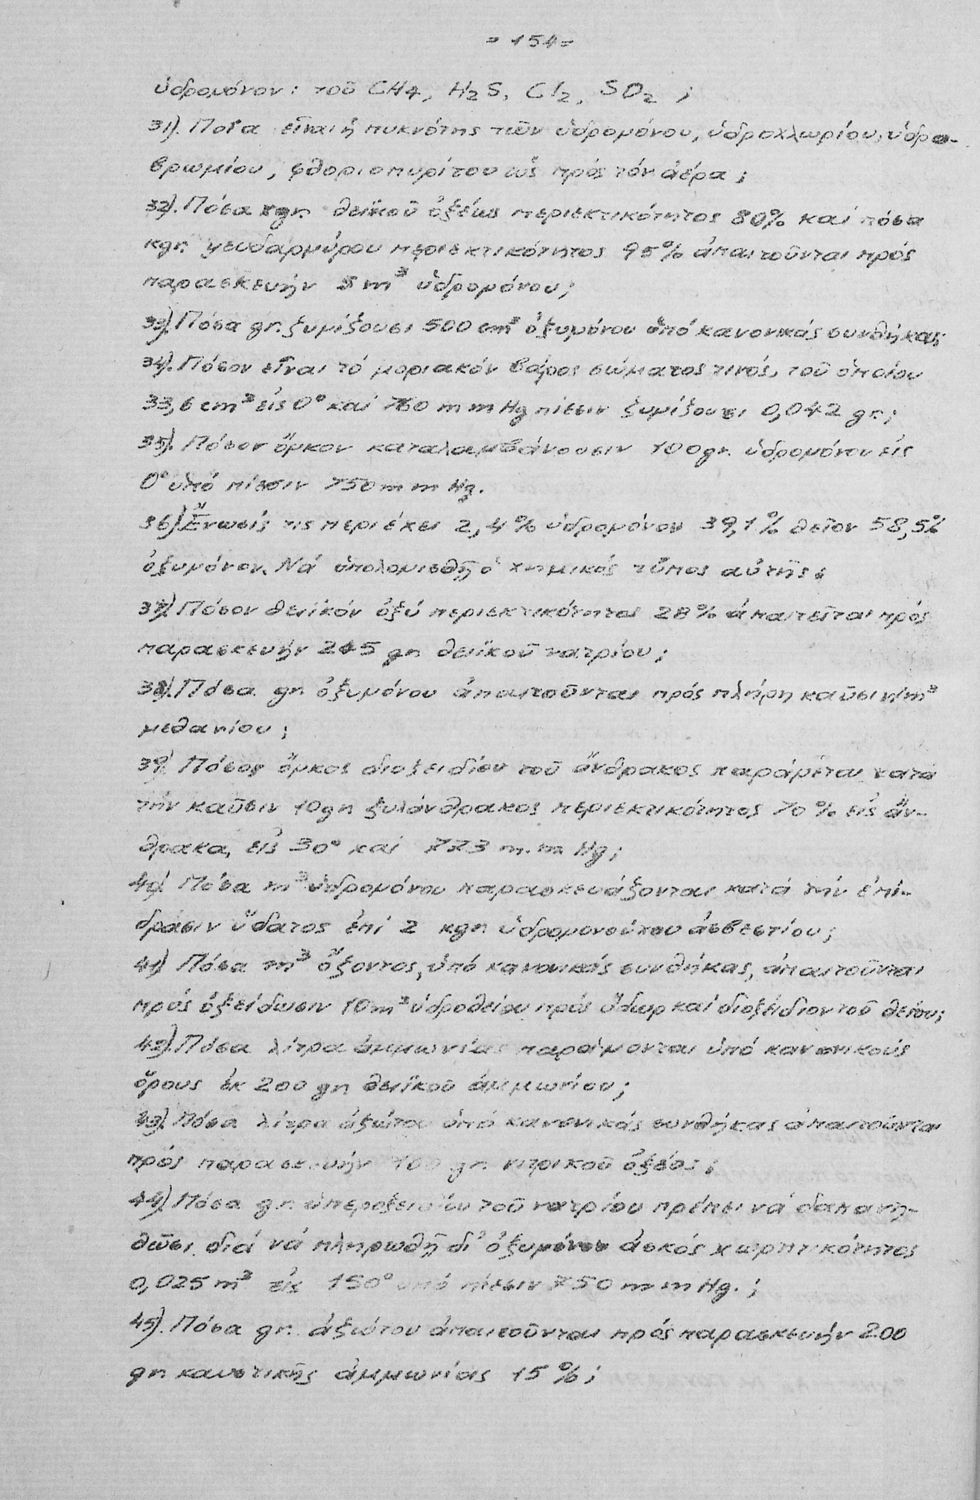 = 154 =
ὑδρογόνον: τοῦ CH4, H2S, Cl2, SO2 ;
31). Ποία εἶναι ἡ πυκνότης τῶν ὑδρογόνου, ὑδροχλωρίου, ὑδρο-
βρωμίου, φθοριοπυρίτου ὡς πρός τόν ἀέρα ;
32). Πόσα χgη θειϊκοῦ ὀξέως περιεκτικότητος 80% καί πόσα
κgη ψευδαργύρου περιεκτικότητος 95% ἀπαιτοῦνται πρός
παρασκευήν 5 m3 ὑδρογόνου ;
33). Πόσα gη ζυγίζουσι 500 cm3 ὀξυγόνου ὑπό κανονικάς συνθήκας
34). Πόσον εἶναι τό μοριακόν βάρος σώματος τινός, τοῦ ὁποίου
33,6 cm3 εἰς 0° καί 760 mm Hg πίεσιν ζυγίζουσι 0,042 gη ;
35). Πόσον ὄγκον καταλαμβάνουσιν 100 gη ὑδρογόνου εἰς
0° ὑπό πίεσιν 750 mm Hg.
36) Ἕνωσίς τις περιέχει 2,4% ὑδρογόνον 39,1% θεῖον 58,5%
ὀξυγόνον. Νά ὑπολογισθῇ ὁ χημικός τύπος αὐτῆς.
37) Πόσον θειϊκόν ὀξύ περιεκτικότητος 28% ἀπαιτεῖται πρός
παρασκευήν 245 gη θειϊκοῦ νατρίου ;
38). Πόσα gη ὀξυγόνου ἀπαιτοῦνται πρός πλήρη καῦσιν 1m3
μεθανίου ;
39) Πόσος ὄγκος διοξειδίου τοῦ ἄνθρακος παράγεται κατά
τήν καῦσιν 10gη ξυλάνθρακος περιεκτικότητος 70% εἰς ἄν-
θρακα, εἰς 30° καί 773 m.m Hg ;
40) Πόσα m3 ὑδρογόνου παρασκευάζονται κατά τήν ἐπί-
δρασιν ὕδατος ἐπί 2 κgη ὑδρογονούχου ἀσβεστίου ;
41) Πόσα m3 ὄζοντος, ὑπό κανονικάς συνθήκας, ἀπαιτοῦνται
πρός ὀξείδωσιν 10m3 ὑδροθείου πρός ὕδωρ καί διοξείδιον τοῦ θείου ;
42). Πόσα λίτρα ἀμμωνίας παράγονται ὑπό κανονικούς
ὅρους ἐκ 200 gη θειϊκοῦ ἀμμωνίου ;
43). Πόσα λίτρα ἀζώτου ὑπό κανονικάς συνθήκας ἀπαιτοῦνται
πρός παρασκευήν 100 gη νιτρικοῦ ὀξέος ;
44). Πόσα gη ὑπεροξειδίου τοῦ νατρίου πρέπει νά δαπανη-
θῶσι διά νά πληρωθῇ δι' ὀξυγόνου ἀσκός χωρητικότητος
0,025 m3 εἰς 150° ὑπό πίεσιν 750 mm Hg. ;
45). Πόσα gη ἀζώτου ἀπαιτοῦνται πρός παρασκευήν 200
gη καυστικῆς ἀμμωνίας 15% ;